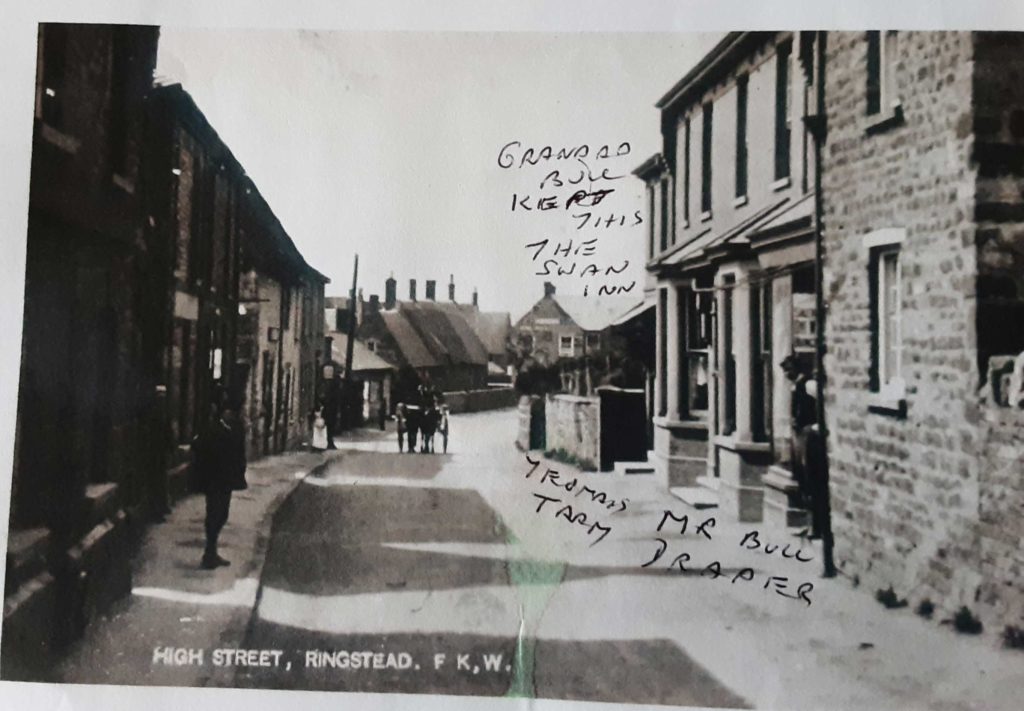 GRANDAD
BULL
KEPT
THIS
THE
SWAN
INN
YEOMANS
FARM
MR BULL
DRAPER
HIGH STREET, RINGSTEAD. F K,W.